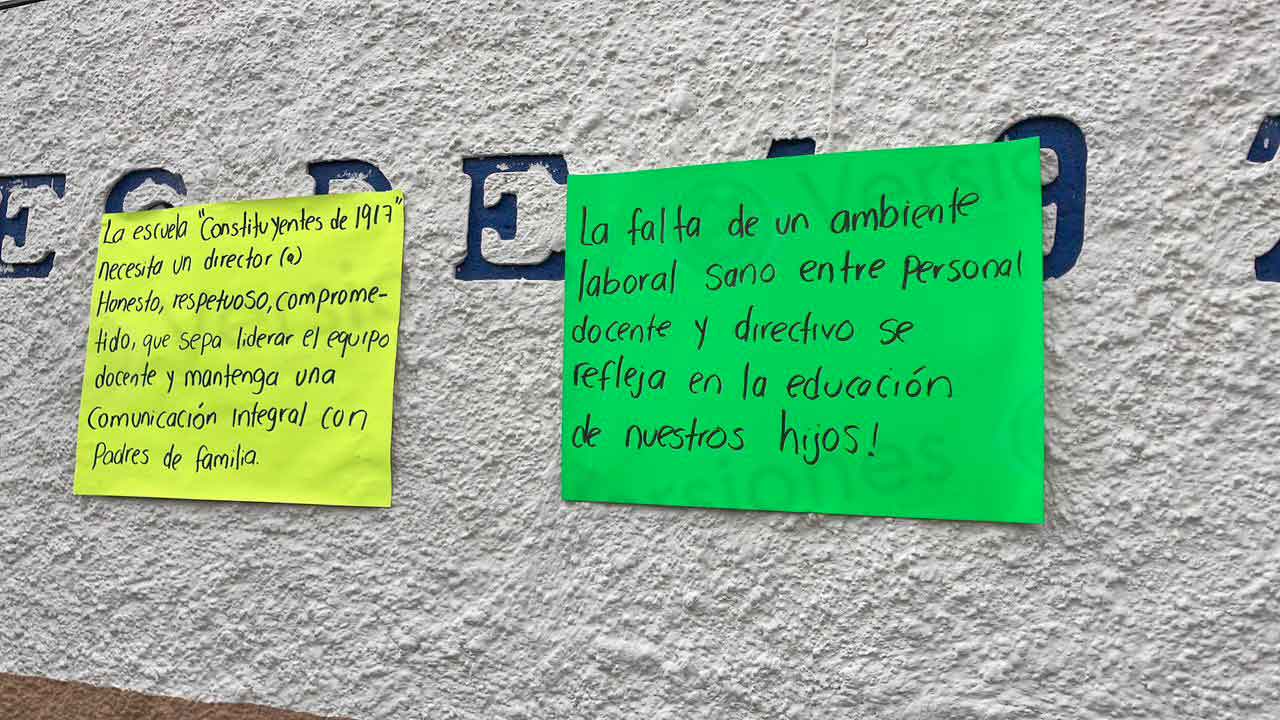 ES DE 19 1
La escuela "Constituyentes de 1917"
necesita un director (a)
Honesto, respetuoso, comprome-
tido, que sepa liderar el equipo
docente y mantenga una
comunicación integral con
Padres de familia.
La falta de un ambiente
laboral sano entre personal
docente y directivo se
refleja en la educación
de nuestros hijos!
Versiones